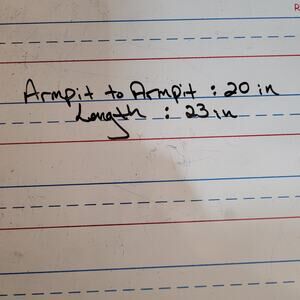 Armpit to Armpit : 20 in
Length : 23 in